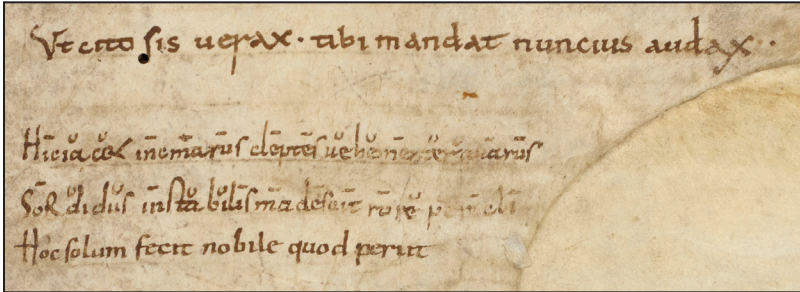 Ut cito sis uerax · tibi mandat nuncius audax ·
Hic iacet incmarus cleptes uehementer auarus
Sordidus instabilis
Hoc solum fecit nobile quod periit